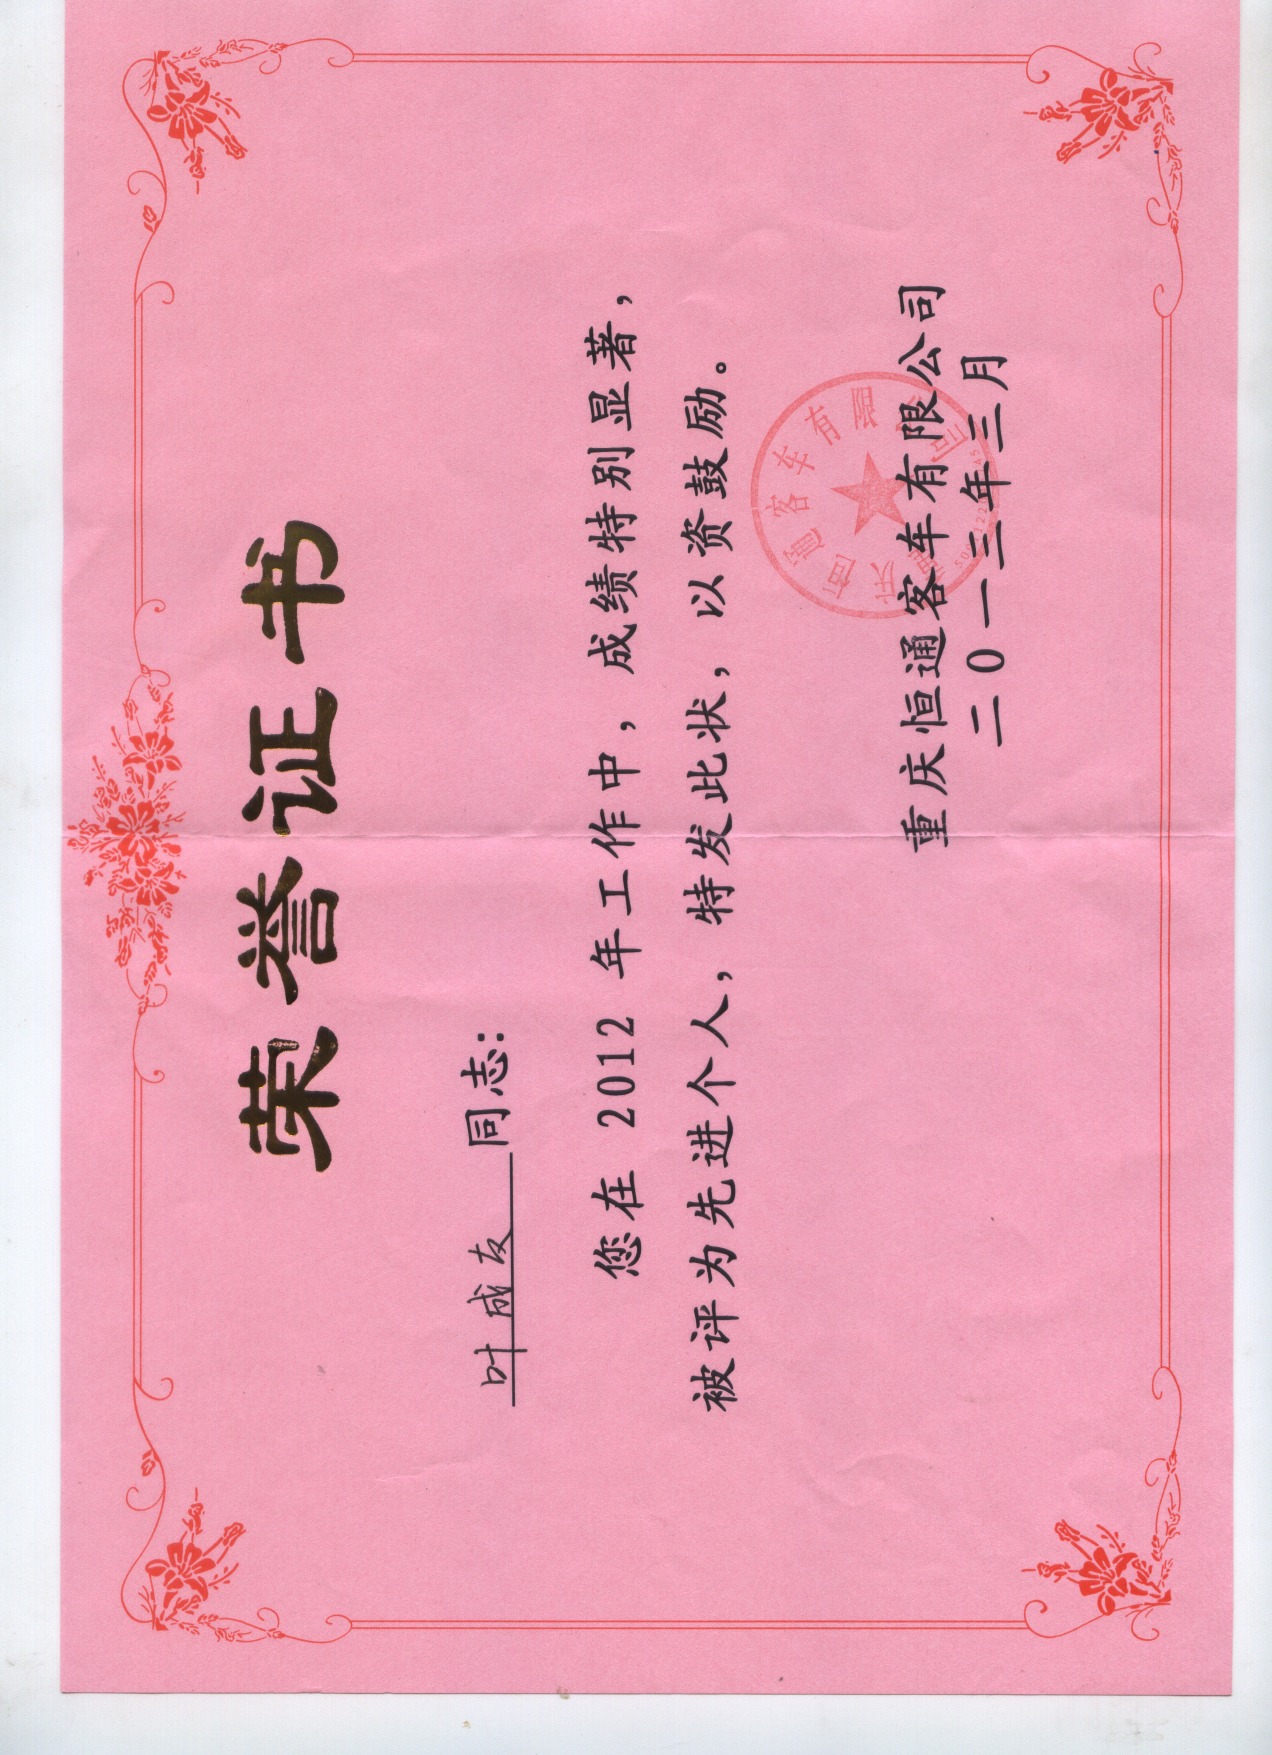 荣誉证书
叶成友 同志:
您在 2012 年工作中，成绩特别显著，
被评为先进个人，特发此状，以资鼓励。
重庆恒通客车有限公司
二〇一三年三月
重庆恒通客车有限公司